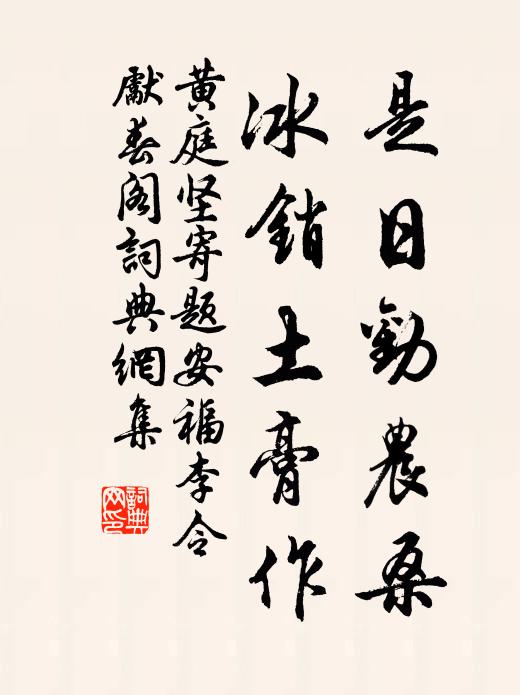 是日勸農桑
冰銷土膏作
黄庭坚寄题安福李令
獻春阁詞典網集
詞典
网印